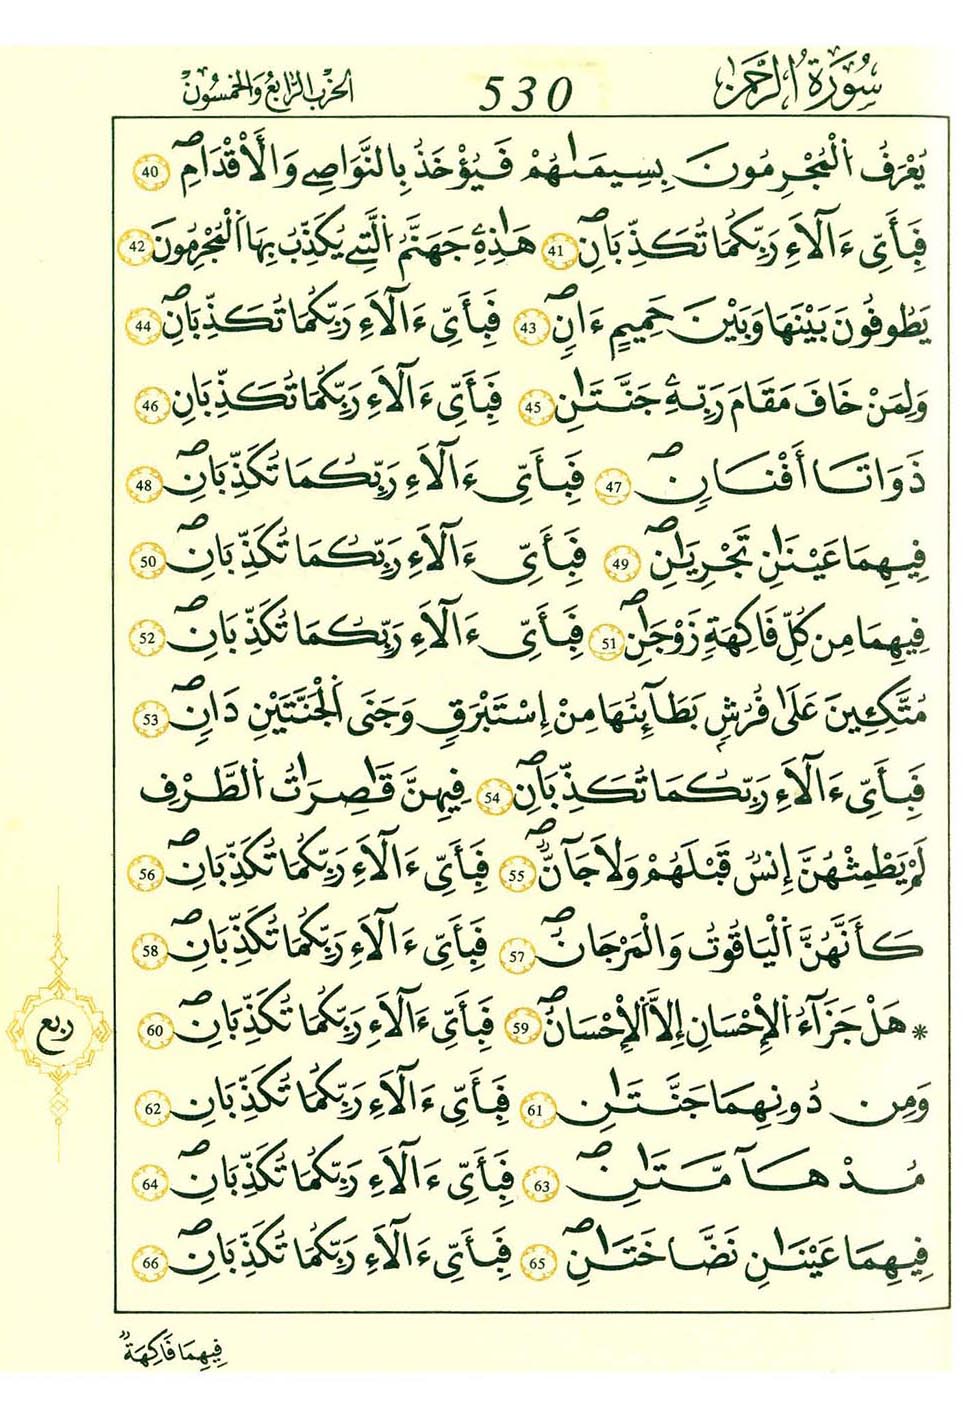 سُورَةُ الرَّحْمٰنِ 530 الحزب الرابع والخمسون
يُعْرَفُ اُ۬لْمُجْرِمُونَ بِسِيمَٰهُمْ فَيُؤْخَذُ بِالنَّوَٰصِے وَالَأقْدَامِۖ 40
فَبِأَيِّ ءَالَآءِ رَبِّكُمَا تُكَذِّبَانِۖ 41 هَٰذِهِۦ جَهَنَّمُ اُ۬لتِے يُكَذِّبُ بِهَا اَ۬لْمُجْرِمُونَ 42
يَطُوفُونَ بَيْنَهَا وَبَيْنَ حَمِيمٍ ءَانٖۖ 43 فَبِأَيِّ ءَالَآءِ رَبِّكُمَا تُكَذِّبَانِۖ 44
وَلِمَنْ خَافَ مَقَامَ رَبِّهِۦ جَنَّتَٰنِ 45 فَبِأَيِّ ءَالَآءِ رَبِّكُمَا تُكَذِّبَانِ 46
ذَوَاتَا أَفْنَانٖۖ 47 فَبِأَيِّ ءَالَآءِ رَبِّكُمَا تُكَذِّبَانِۖ 48
فِيهِمَا عَيْنَٰنِ تَجْرِيَٰنِۖ 49 فَبِأَيِّ ءَالَآءِ رَبِّكُمَا تُكَذِّبَانِۖ 50
فِيهِمَا مِن كُلِّ فَاكِهَةٖ زَوْجَٰنِۖ 51 فَبِأَيِّ ءَالَآءِ رَبِّكُمَا تُكَذِّبَانِۖ 52
مُتَّكِـِٕينَ عَلَىٰ فُرُشِۢ بَطَآئِنُهَا مِنْ إِسْتَبْرَقٖ وَجَنَى اَ۬لْجَنَّتَيْنِ دَانٖۖ 53
فَبِأَيِّ ءَالَآءِ رَبِّكُمَا تُكَذِّبَانِۖ 54 فِيهِنَّ قَٰصِرَٰتُ اُ۬لطَّرْفِ
لَمْ يَطْمِثْهُنَّ إِنسٞ قَبْلَهُمْ وَلَا جَآنّٞۖ 55 فَبِأَيِّ ءَالَآءِ رَبِّكُمَا تُكَذِّبَانِۖ 56
كَأَنَّهُنَّ اَ۬لْيَاقُوتُ وَالْمَرْجَانُۖ 57 فَبِأَيِّ ءَالَآءِ رَبِّكُمَا تُكَذِّبَانِۖ 58
* هَلْ جَزَآءُ اُ۬لِاحْسَانِ إِلَّا اَ۬لِاحْسَانُۖ 59 فَبِأَيِّ ءَالَآءِ رَبِّكُمَا تُكَذِّبَانِۖ 60
ربع
وَمِن دُونِهِمَا جَنَّتَٰنِ 61 فَبِأَيِّ ءَالَآءِ رَبِّكُمَا تُكَذِّبَانِ 62
مُدْهَآمَّتَٰنِۖ 63 فَبِأَيِّ ءَالَآءِ رَبِّكُمَا تُكَذِّبَانِۖ 64
فِيهِمَا عَيْنَٰنِ نَضَّاخَتَٰنِۖ 65 فَبِأَيِّ ءَالَآءِ رَبِّكُمَا تُكَذِّبَانِۖ 66
فِيهِمَا فَاكِهَةٞ